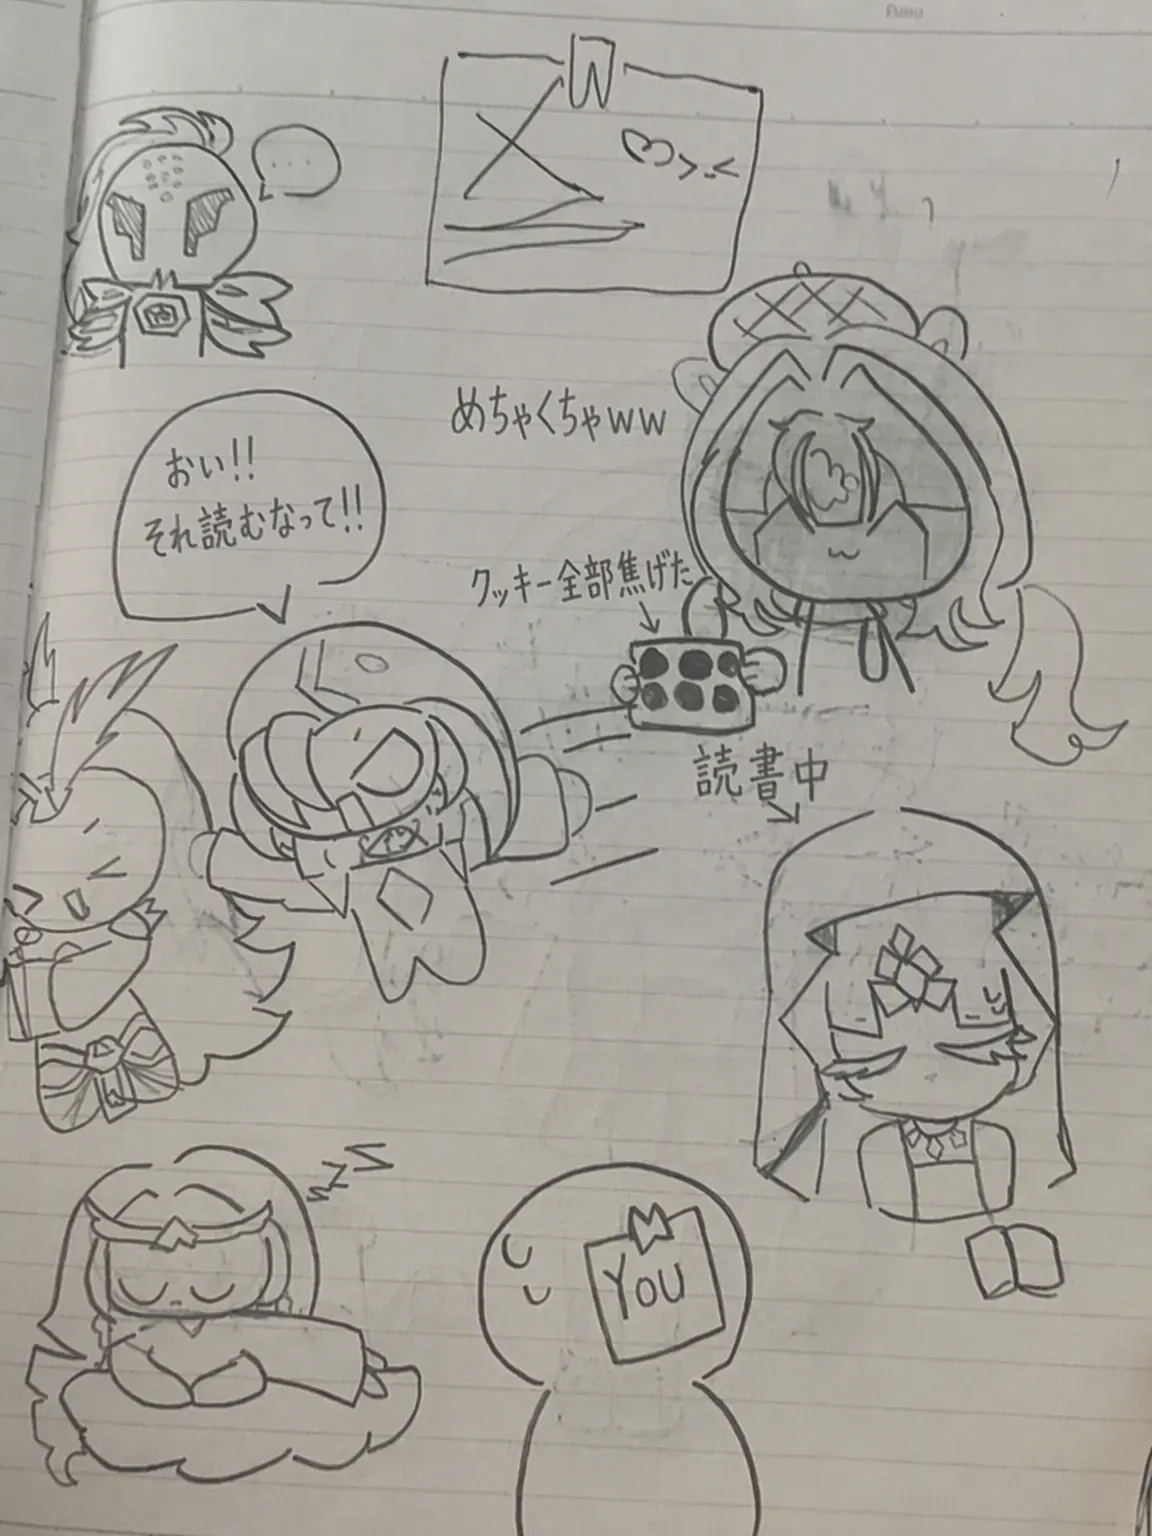 ...
めちゃくちゃww
おい!!
それ読むなって!!
クッキー全部焦げた
読書中
zzz
YOU